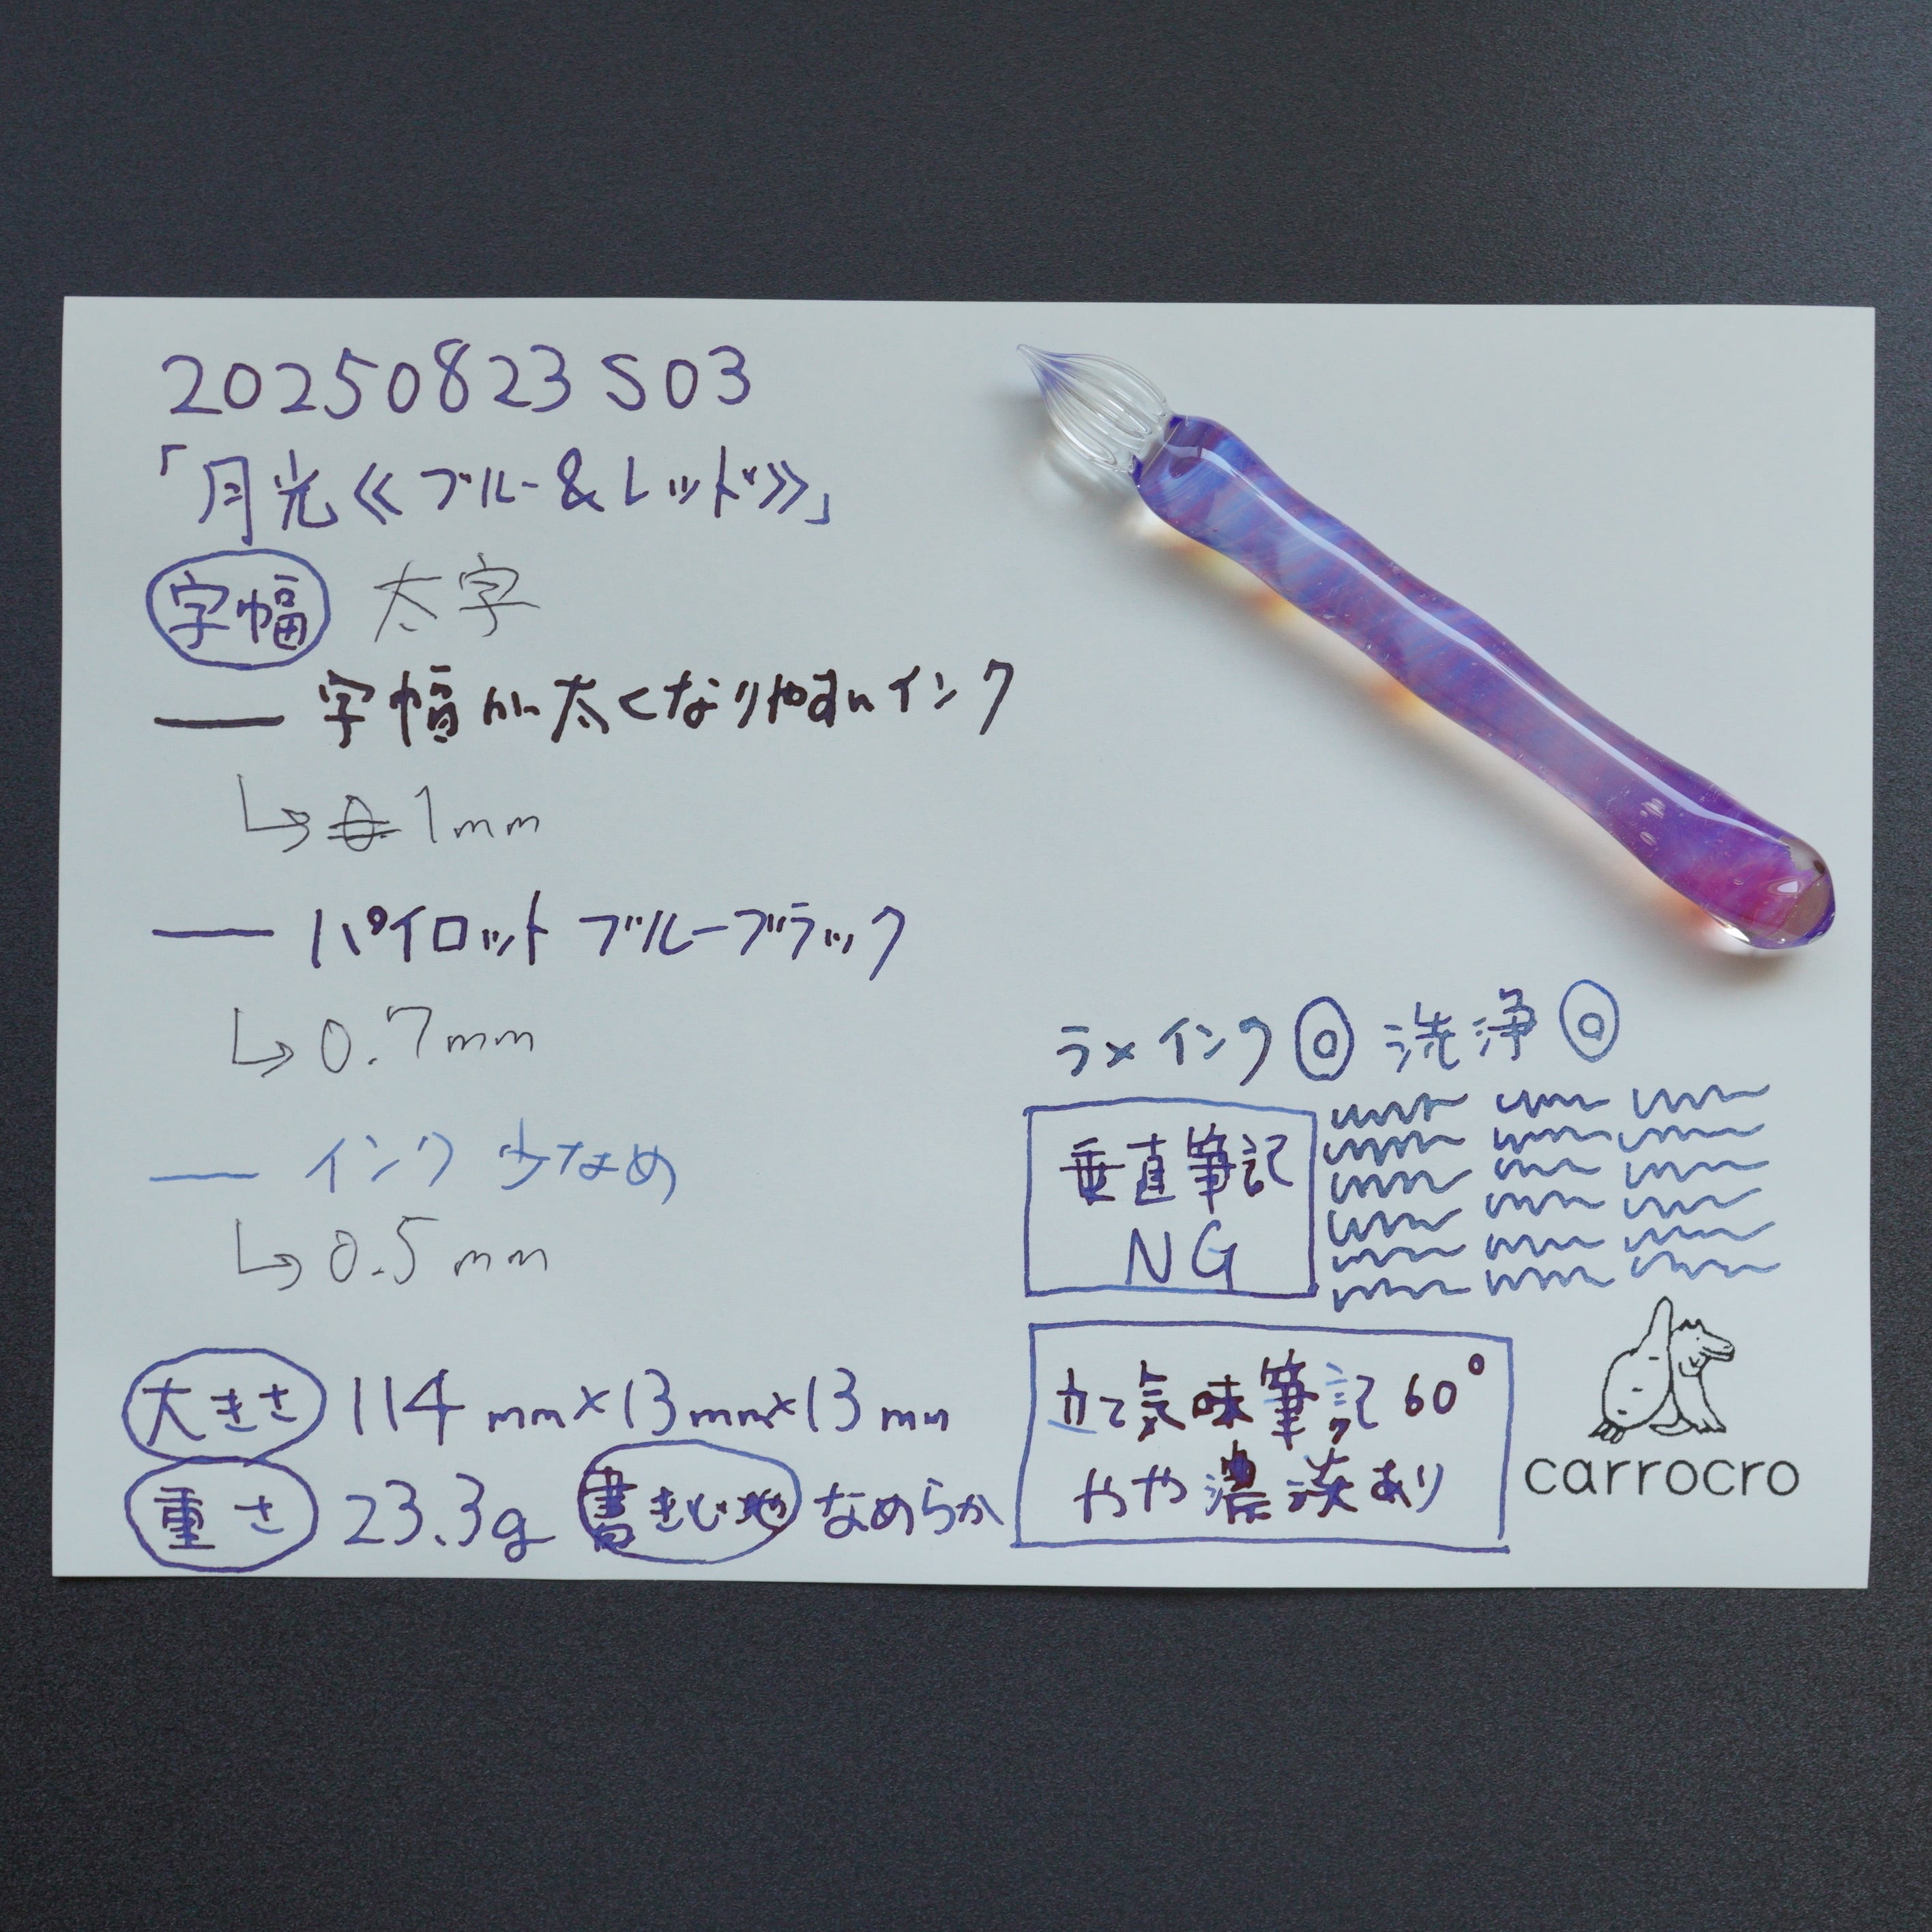 20250823S03
「月光《ブルー&レッド》」
字幅 太字
字幅が太くなりやすいインク
1mm
パイロット ブルーブラック
0.7mm
インク少なめ
0.5mm
大きさ 114mm×13mm×13mm
重さ 23.3g 書き心地 なめらか
ラメインク◎ 洗浄◎
垂直筆記
NG
立て気味筆記60°
やや濃淡あり
carrocro